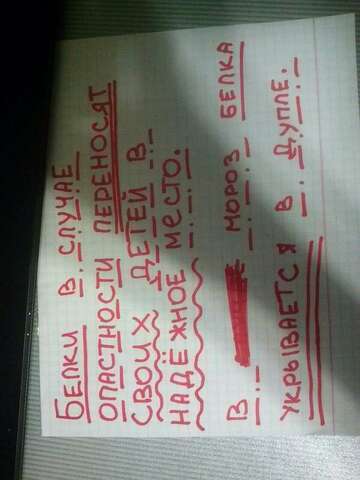 БЕЛКИ В СЛУЧАЕ
ОПАСТНОСТИ ПЕРЕНОСЯТ
СВОИХ ДЕТЕЙ В
НАДЁЖНОЕ МЕСТО.
В МОРОЗ БЕЛКА
УКРЫВАЕТСЯ В ДУПЛЕ.